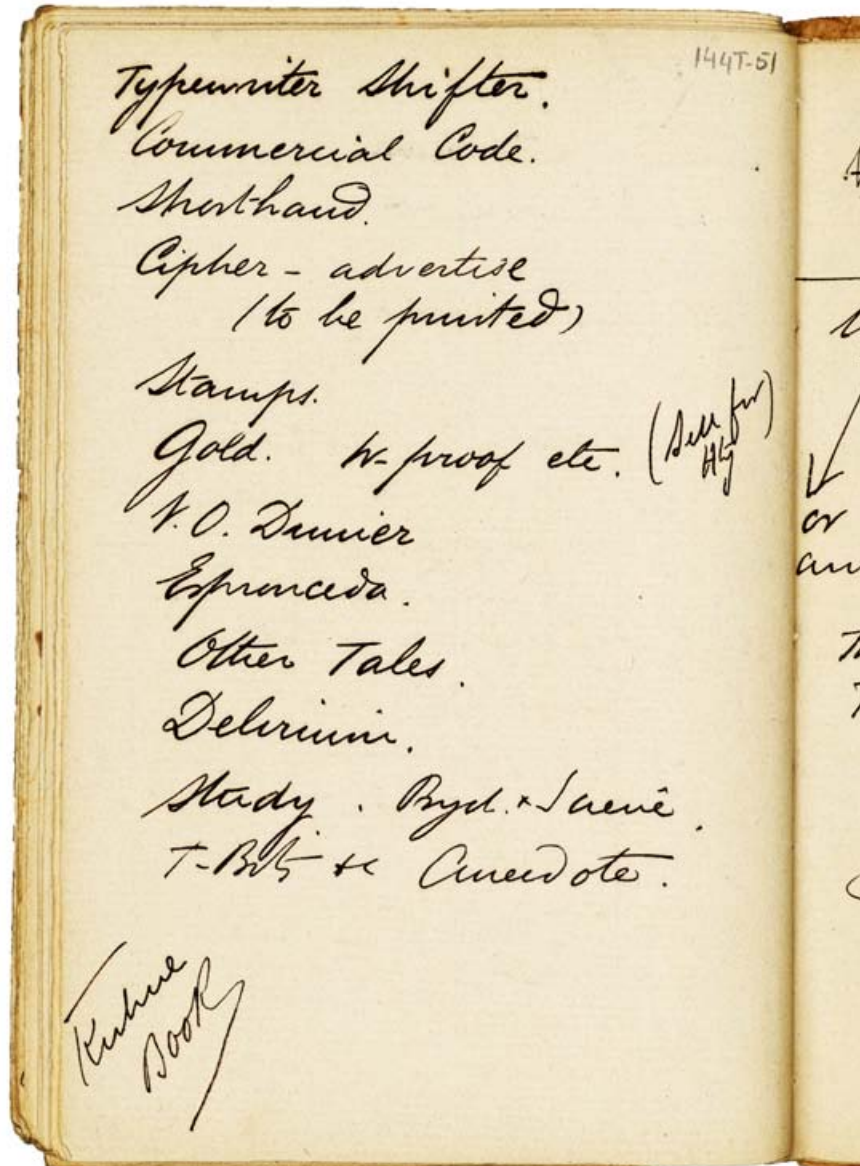 144T-51
Typewriter Shifter.
Commercial Code.
Shorthand.
Cipher - advertise
(to be printed)
Stamps.
Gold. W-proof etc. (Sell for)
V.O. Dumier
Espronceda.
Other Tales.
Delirium.
Study. &
T-Bits &c Anecdote.
Kuhne
Book
or